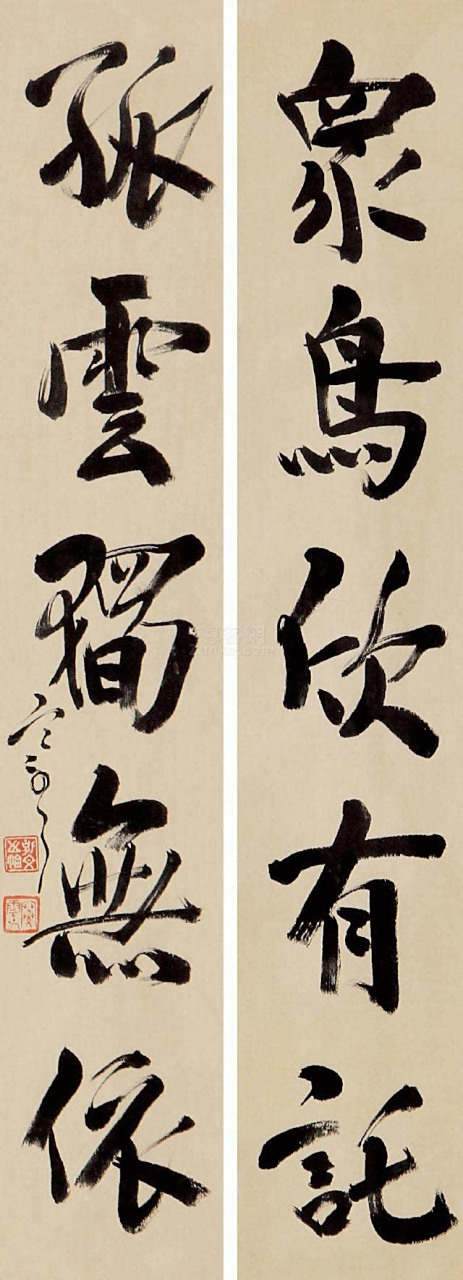 眾鳥欣有託
孤雲獨無依